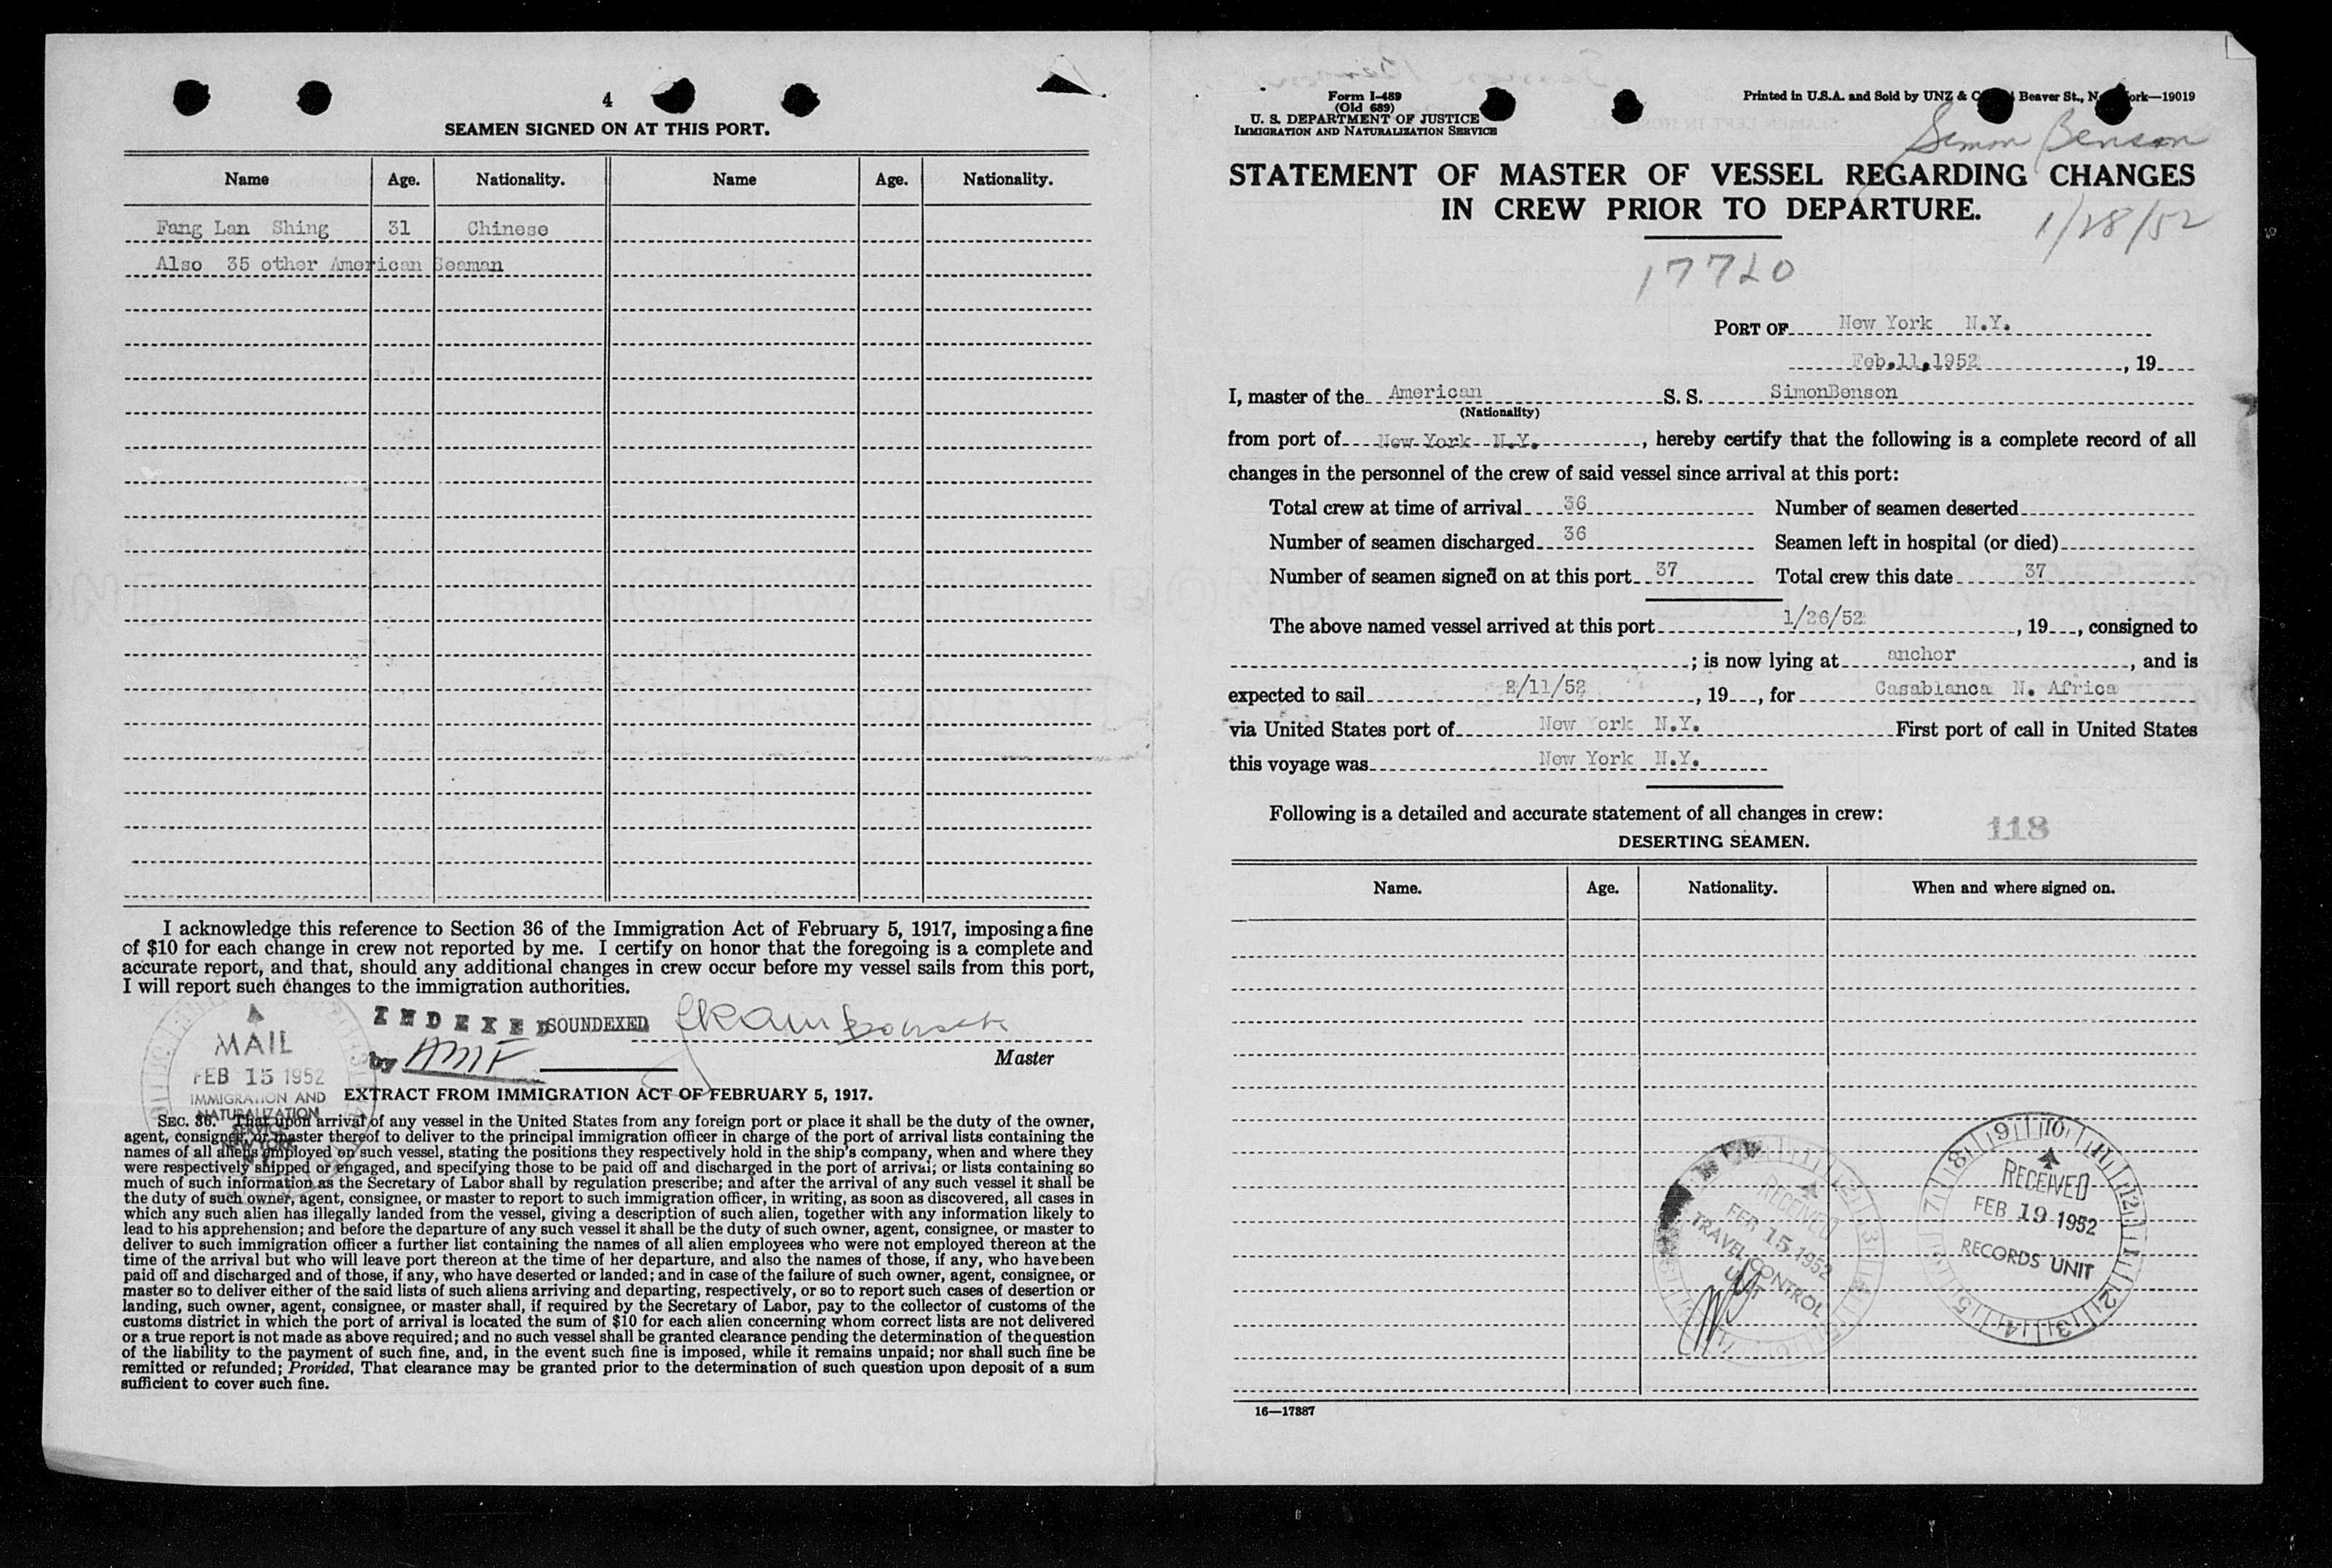 4
SEAMEN SIGNED ON AT THIS PORT.
Name Age. Nationality. Name Age. Nationality.
Fang Lan Shing 31 Chinese
Also 35 other American Seaman
I acknowledge this reference to Section 36 of the Immigration Act of February 5, 1917, imposing a fine
of $10 for each change in crew not reported by me. I certify on honor that the foregoing is a complete and
accurate report, and that, should any additional changes in crew occur before my vessel sails from this port,
I will report such changes to the immigration authorities.
INDEXED SOUNDEXED
by AMF
Master
MAIL
FEB 15 1952
IMMIGRATION AND
NATURALIZATION
SERVICE
NEW YORK
EXTRACT FROM IMMIGRATION ACT OF FEBRUARY 5, 1917.
SEC. 36. That upon arrival of any vessel in the United States from any foreign port or place it shall be the duty of the owner,
agent, consignee, or master thereof to deliver to the principal immigration officer in charge of the port of arrival lists containing the
names of all aliens employed on such vessel, stating the positions they respectively hold in the ship's company, when and where they
were respectively shipped or engaged, and specifying those to be paid off and discharged in the port of arrival; or lists containing so
much of such information as the Secretary of Labor shall by regulation prescribe; and after the arrival of any such vessel it shall be
the duty of such owner, agent, consignee, or master to report to such immigration officer, in writing, as soon as discovered, all cases in
which any such alien has illegally landed from the vessel, giving a description of such alien, together with any information likely to
lead to his apprehension; and before the departure of any such vessel it shall be the duty of such owner, agent, consignee, or master to
deliver to such immigration officer a further list containing the names of all alien employees who were not employed thereon at the
time of the arrival but who will leave port thereon at the time of her departure, and also the names of those, if any, who have been
paid off and discharged and of those, if any, who have deserted or landed; and in case of the failure of such owner, agent, consignee, or
master so to deliver either of the said lists of such aliens arriving and departing, respectively, or so to report such cases of desertion or
landing, such owner, agent, consignee, or master shall, if required by the Secretary of Labor, pay to the collector of customs of the
customs district in which the port of arrival is located the sum of $10 for each alien concerning whom correct lists are not delivered
or a true report is not made as above required; and no such vessel shall be granted clearance pending the determination of the question
of the liability to the payment of such fine, and, in the event such fine is imposed, while it remains unpaid; nor shall such fine be
remitted or refunded; Provided, That clearance may be granted prior to the determination of such question upon deposit of a sum
sufficient to cover such fine.
Form I-489
(Old 689)
U. S. DEPARTMENT OF JUSTICE
IMMIGRATION AND NATURALIZATION SERVICE
Printed in U.S.A. and Sold by UNZ & C Beaver St., N ork—19019
Simon Benson
STATEMENT OF MASTER OF VESSEL REGARDING CHANGES
IN CREW PRIOR TO DEPARTURE.
1/28/52
17720
PORT OF New York N.Y.
Feb.11,1952, 19
I, master of the American S. S. SimonBenson
(Nationality)
from port of New York N.Y., hereby certify that the following is a complete record of all
changes in the personnel of the crew of said vessel since arrival at this port:
Total crew at time of arrival 36 Number of seamen deserted
Number of seamen discharged 36 Seamen left in hospital (or died)
Number of seamen signed on at this port 37 Total crew this date 37
The above named vessel arrived at this port 1/26/52, 19, consigned to
; is now lying at anchor, and is
expected to sail 2/11/52, 19, for Casablanca N. Africa
via United States port of New ork N.Y. First port of call in United States
this voyage was New York N.Y.
Following is a detailed and accurate statement of all changes in crew:
118
DESERTING SEAMEN.
Name. Age. Nationality. When and where signed on.
RECEIVED
FEB 15 1952
TRAVEL CONTROL
UNIT
9 10 11 12 1 2 3 4 5 6 7 8
RECEIVED
FEB 19 1952
RECORDS UNIT
16—17887